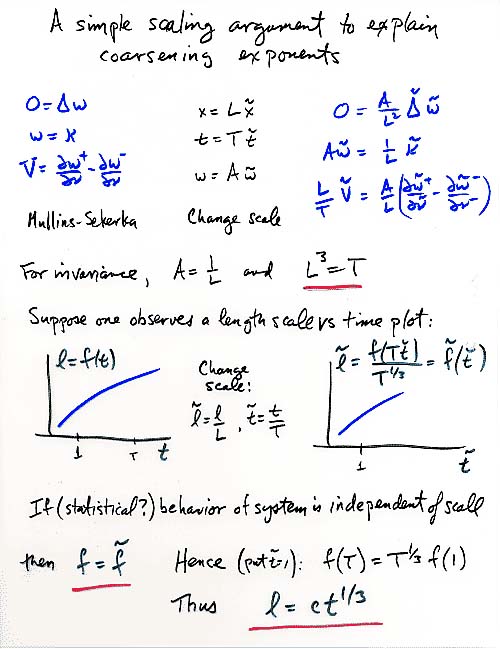 A simple scaling argument to explain
coarsening exponents
0 = Δw
w = κ
V = ∂w⁺/∂ν - ∂w⁻/∂ν
Mullins-Sekerka
x = L x̃
t = T t̃
w = A w̃
Change scale
0 = A/L² Δ̃ w̃
A w̃ = 1/L κ̃
L/T Ṽ = A/L (∂w̃⁺/∂ν̃ - ∂w̃⁻/∂ν̃)
For invariance, A = 1/L and L³ = T
Suppose one observes a length scale vs time plot:
l = f(t)
1 T t
Change
scale:
l̃ = l/L, t̃ = t/T
l̃ = f(T t̃)/T^1/3 = f̃(t̃)
1 t̃
If (statistical?) behavior of system is independent of scale
then f = f̃ Hence (put t̃=1): f(T) = T^1/3 f(1)
Thus l = ct^1/3